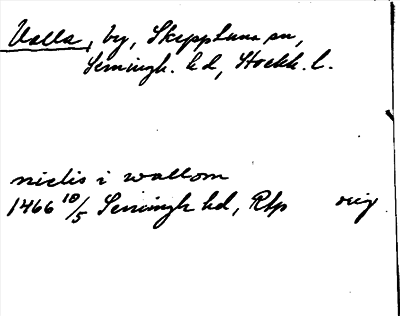 Valla, by, Skepptuna sn,
Semingh. hd, Stockh. l.
niclis i wallom
1466 10/5 Semingh hd, Rtp orig